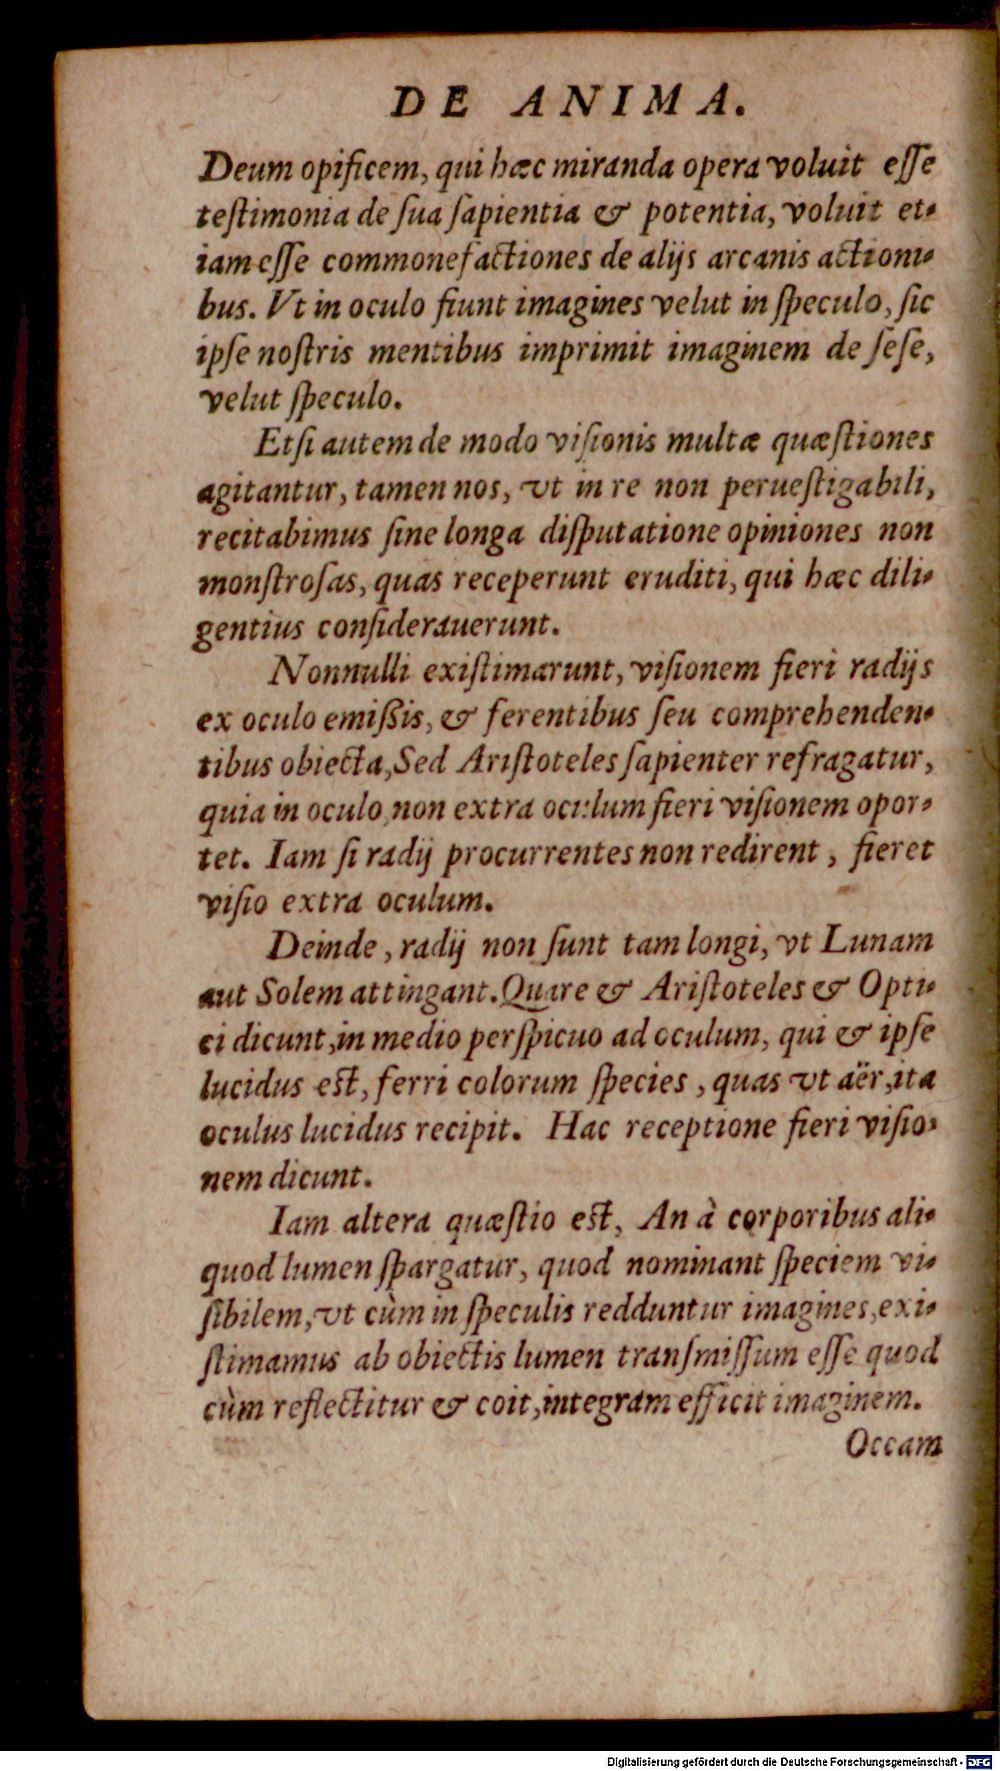 DE ANIMA.
Deum opificem, qui hæc miranda opera voluit eſſe
teſtimonia de ſua ſapientia & potentia, voluit et-
iam eſſe commonefactiones de alijs arcanis actioni-
bus. Vt in oculo fiunt imagines velut in ſpeculo, ſic
ipſe noſtris mentibus imprimit imaginem de ſeſe,
velut ſpeculo.
Etſi autem de modo viſionis multæ quæſtiones
agitantur, tamen nos, vt in re non perueſtigabili,
recitabimus ſine longa diſputatione opiniones non
monſtroſas, quas receperunt eruditi, qui hæc dili-
gentius conſiderauerunt.
Nonnulli exiſtimarunt, viſionem fieri radijs
ex oculo emißis, & ferentibus ſeu comprehenden-
tibus obiecta, Sed Ariſtoteles ſapienter refragatur,
quia in oculo, non extra oculum fieri viſionem opor-
tet. Iam ſi radij procurrentes non redirent, fieret
viſio extra oculum.
Deinde, radij non ſunt tam longi, vt Lunam
aut Solem attingant. Quare & Ariſtoteles & Opti-
ci dicunt, in medio perſpicuo ad oculum, qui & ipſe
lucidus eſt, ferri colorum ſpecies, quas vt aër, ita
oculus lucidus recipit. Hac receptione fieri viſio-
nem dicunt.
Iam altera quæſtio eſt, An à corporibus ali-
quod lumen ſpargatur, quod nominant ſpeciem vi-
ſibilem, vt cùm in ſpeculis redduntur imagines, exi-
ſtimamus ab obiectis lumen tranſmiſſum eſſe quod
cùm reflectitur & coit, integram efficit imaginem.
Occam
Digitalisierung gefördert durch die Deutsche Forschungsgemeinschaft - DFG